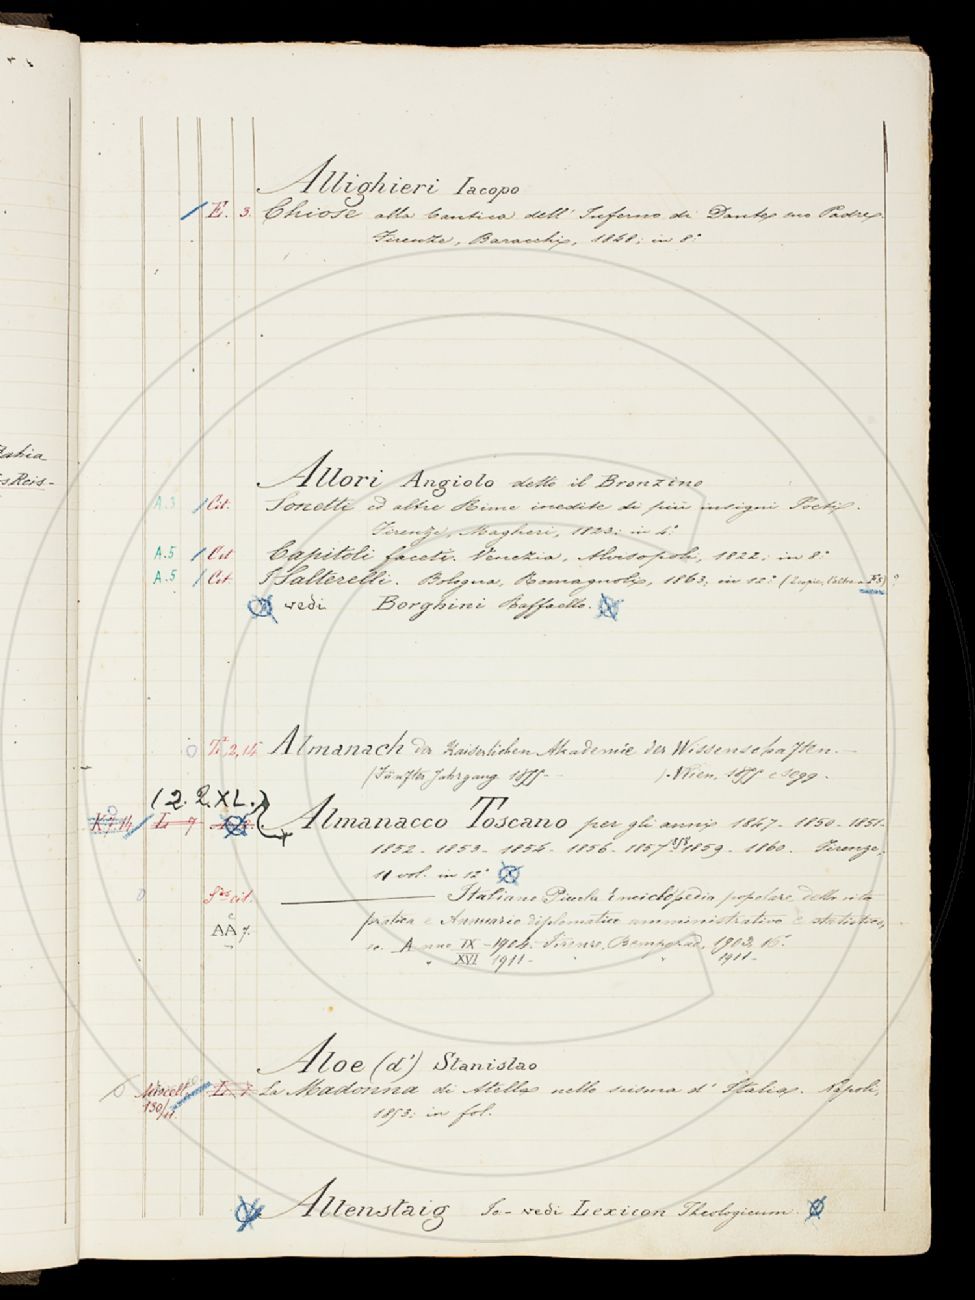 Bahia
Allighieri Iacopo
E. 3. Chiose alla Cantica dell' Inferno di Dante suo Padre.
Firenze, Baracchi, 1848; in 8.°
Allori Angiolo detto il Bronzino
A.3 Cit. Sonetti ed altre Rime inedite di più insigni Poeti.
Firenze, Magheri, 1823; in 4.°
A.5 Cit Capitoli faceti. Venezia, Alvisopoli, 1822; in 8.°
A.5 Cit. I Salterelli. Bologna, Romagnoli, 1863; in 12.°
vedi Borghini Raffaello.
2, 14 Almanach der Kaiserlichen Akademie der Wissenschaften.
(Fünfter Jahrgang 1855 - ). Wien, 1855 e segg.
(2. 2. XL.)
L 7 Almanacco Toscano per gli anni 1847. 1850. 1851.
1852. 1853. 1854. 1856. 1857. 1858. 1859. 1860. Firenze,
11 vol. in 12.°
Italiano Piccola Enciclopedia popolare della vita
AA 7. pratica e Annuario diplomatico amministrativo e statistico,
Anno IX - 1904. Firenze, Bemporad, 1903. 16.°
XVI 1911 - 1911 -
Aloe (d') Stanislao
Miscell. 130/11. L. 7 La Madonna di Atella nello scisma d' Italia. Napoli,
1853; in fol.
Altenstaig Io - vedi Lexicon Theologicum.